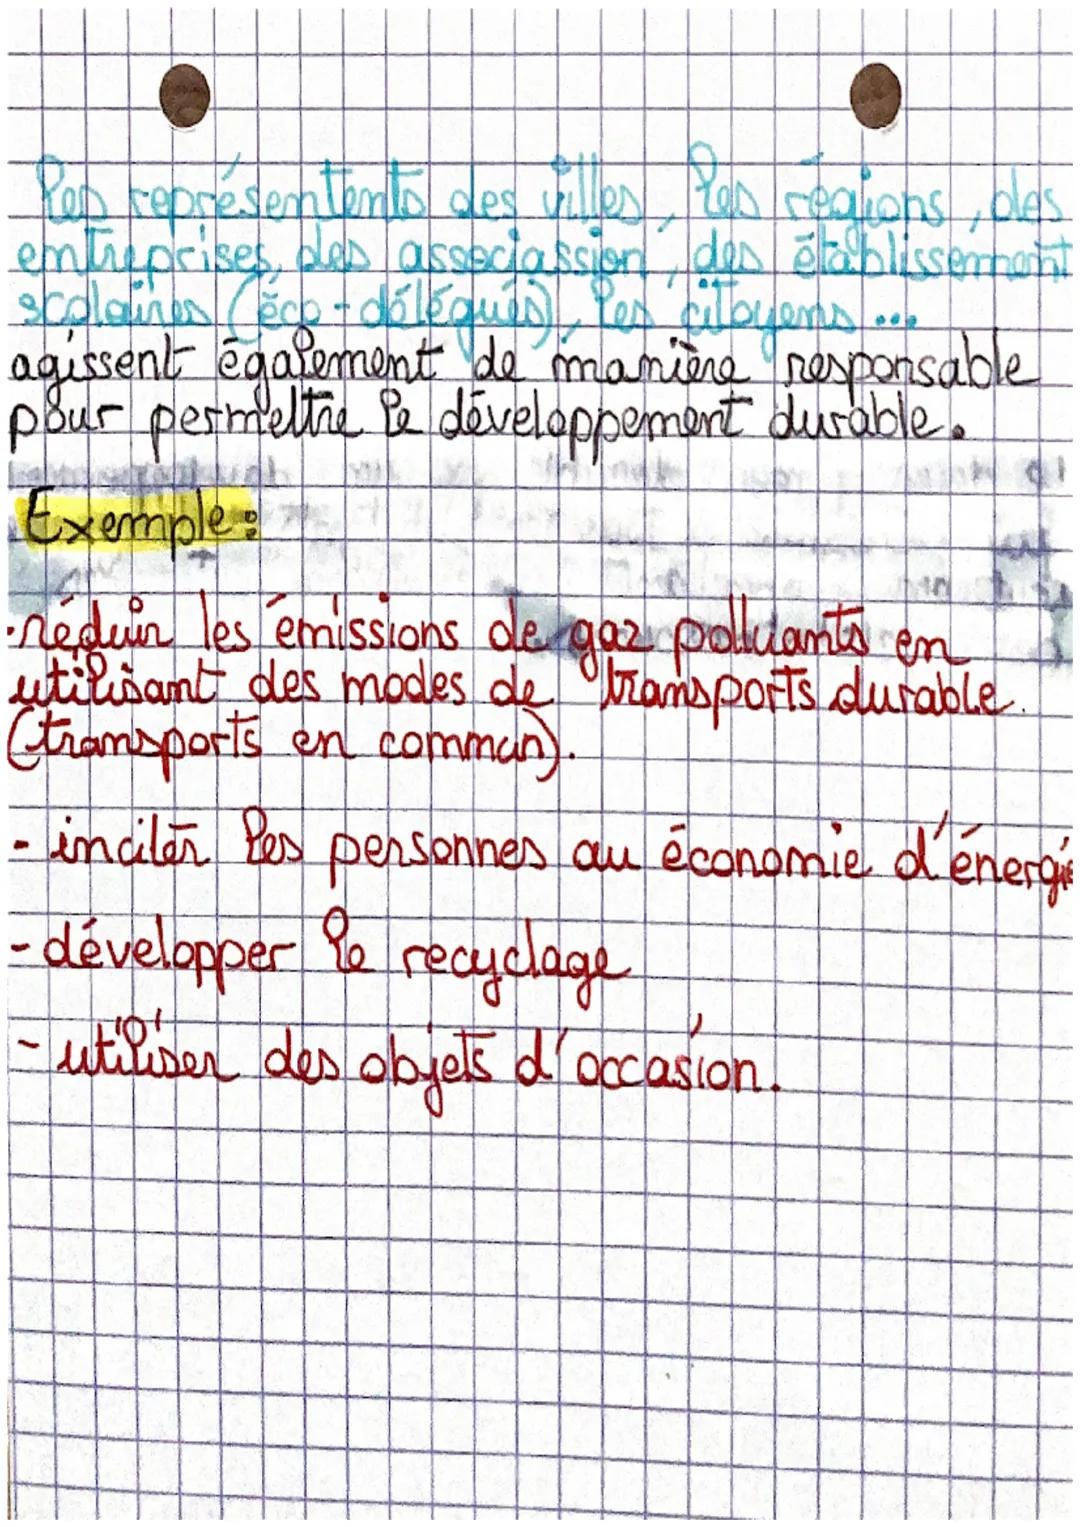 Les représentents des villes, les régions, des
entreprises, des associassion, des établissement
scolaires (éco-délégués), les citoyens ...
agissent également de manière responsable
pour permettre le développement durable.
Exemple :
-réduir les émissions de gaz polluants en
utilisant des modes de transports durable.
(transports en commun).
- inciter les personnes au économie d'énergie
- développer le recyclage
- utiliser des objets d'occasion.